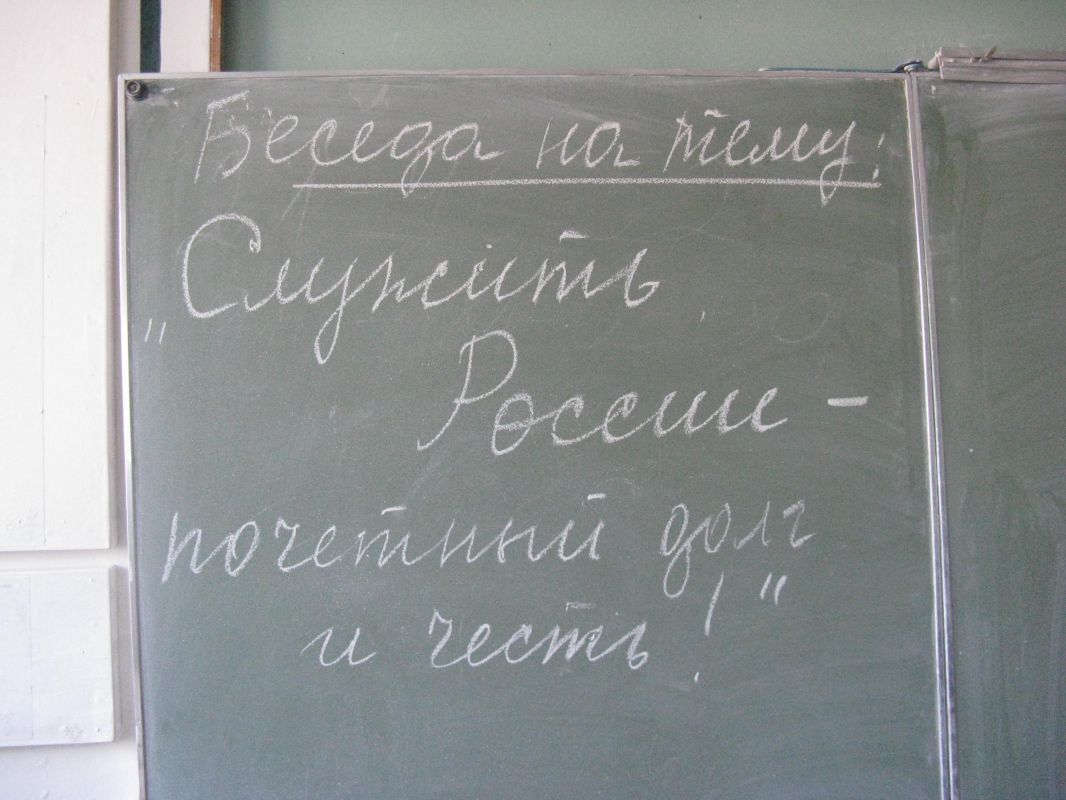 Беседа на тему:
„Служить
России –
почетный долг
и честь!"